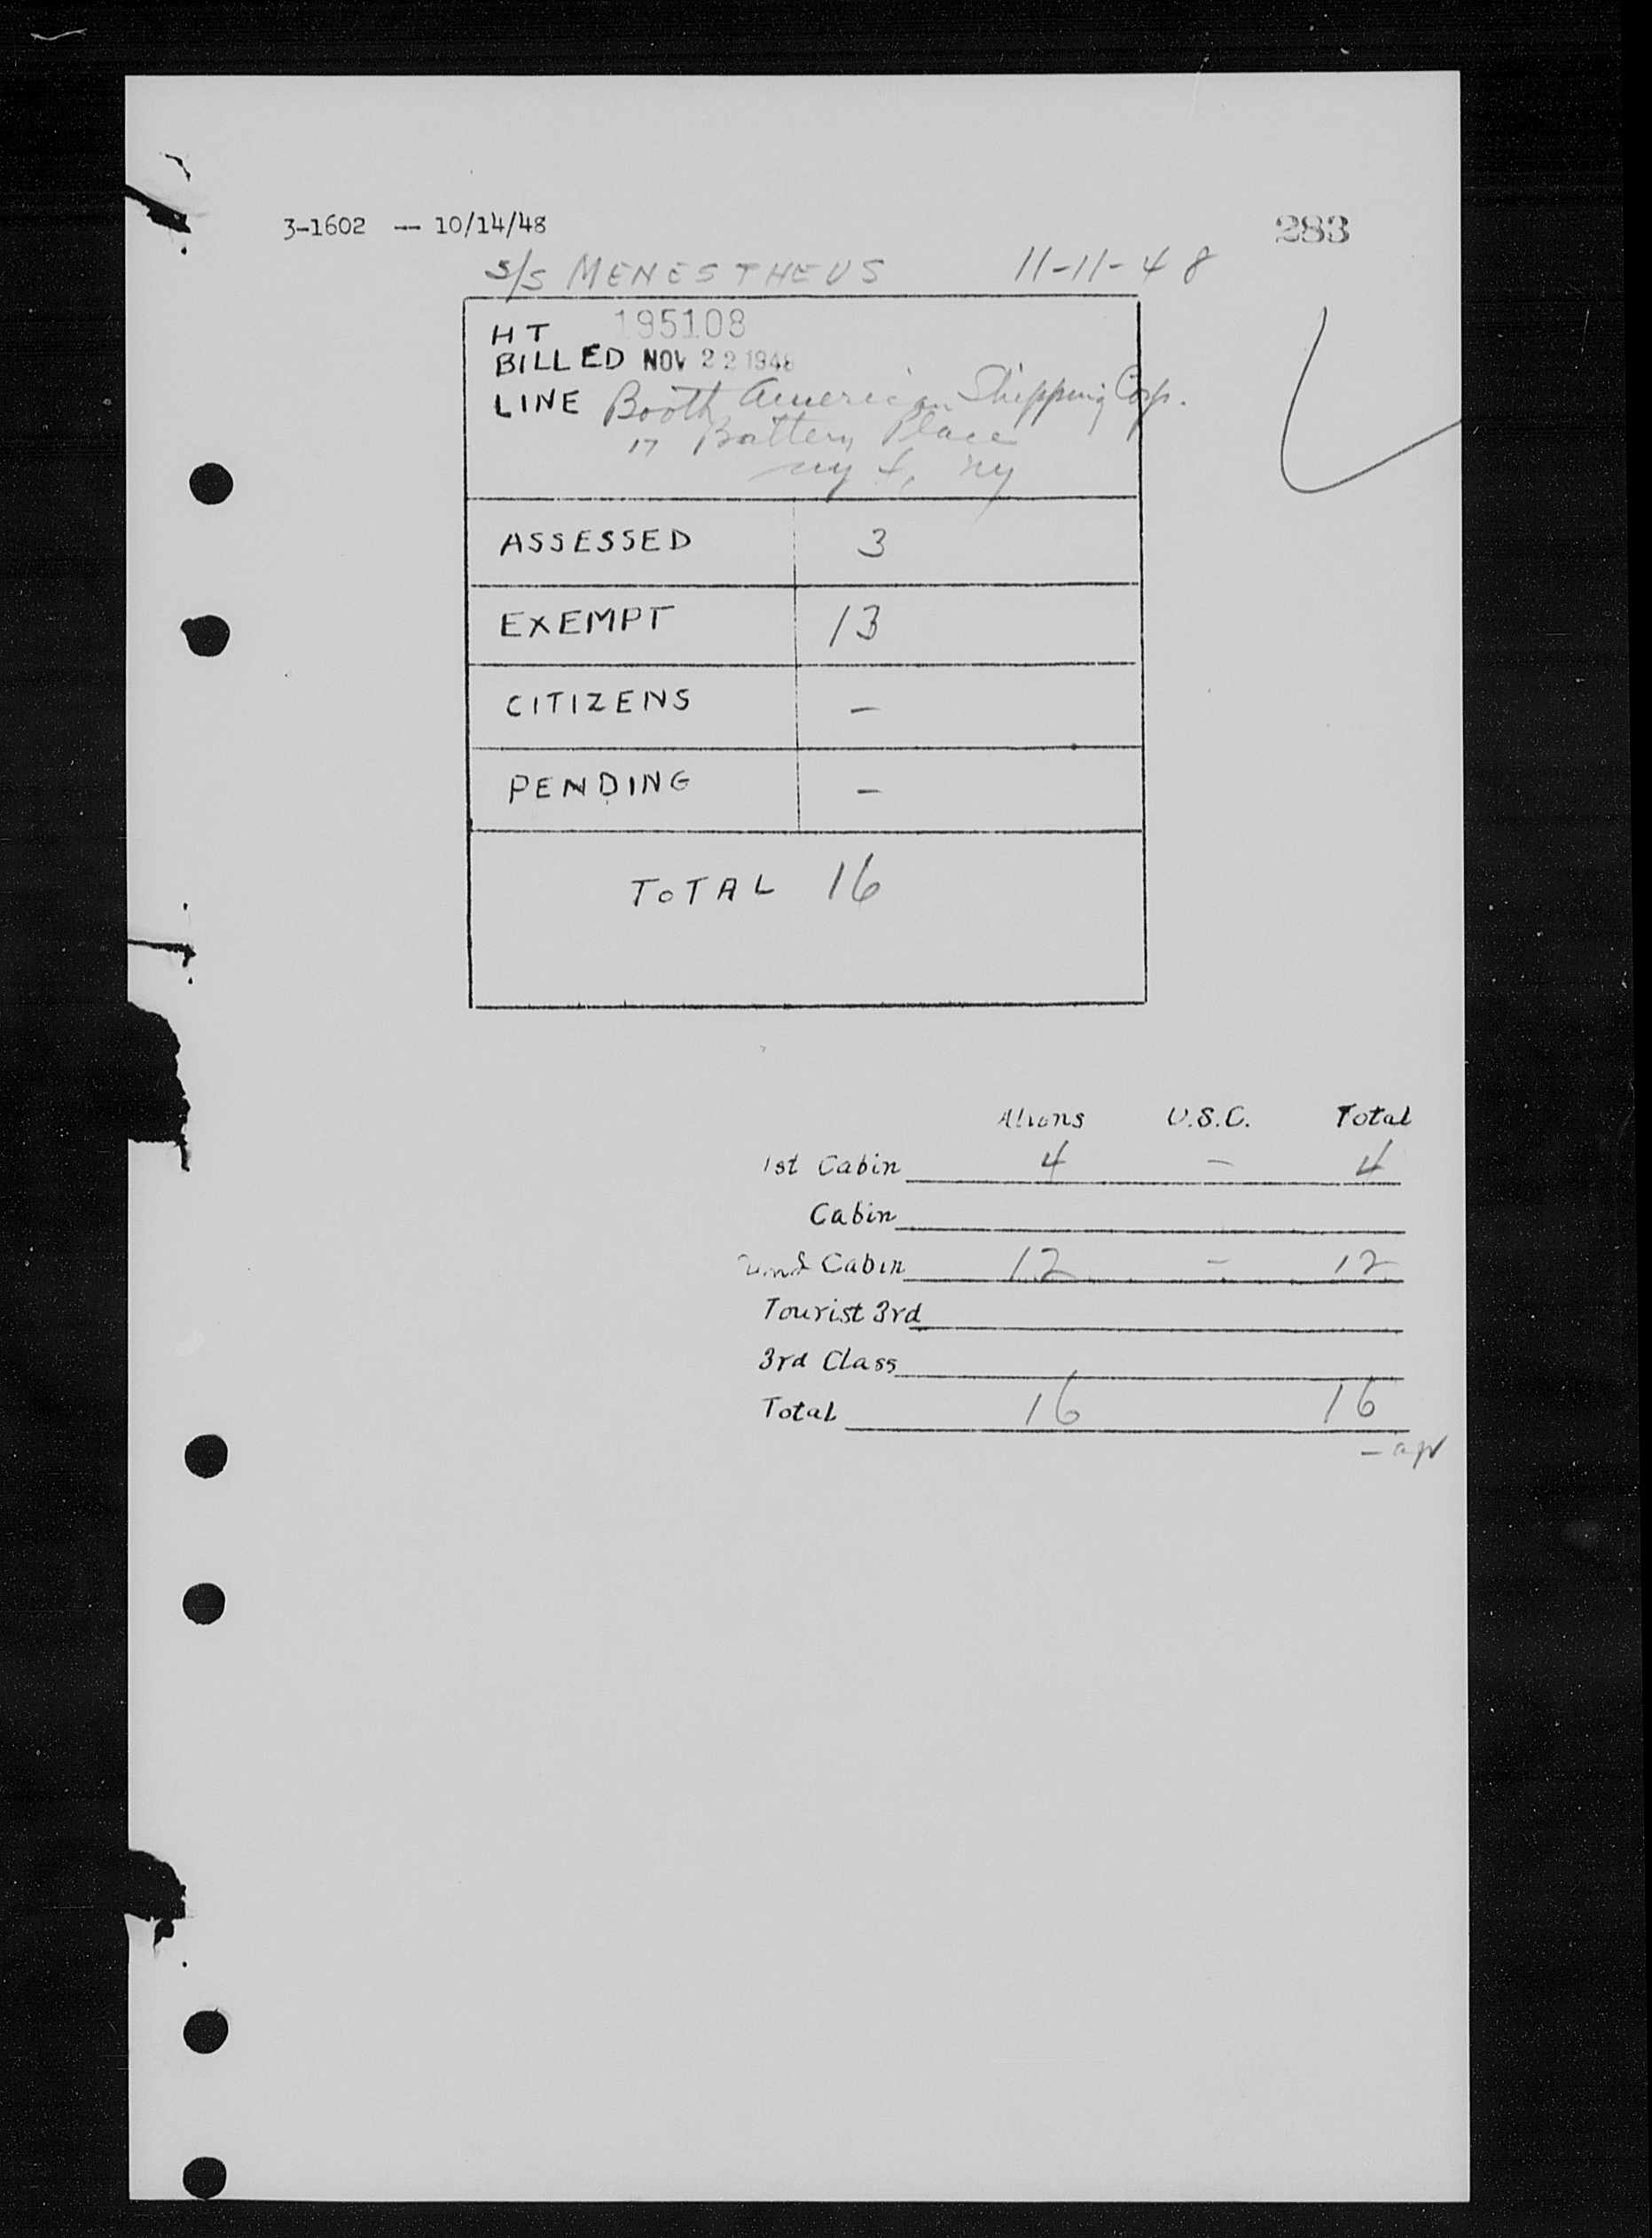 3-1602 — 10/14/48
283
S/S MENESTHEUS 11-11-48
HT 195108
BILLED NOV 22 1948
LINE Booth American Shipping Corp.
17 Battery Place
NY 4, NY
ASSESSED 3
EXEMPT 13
CITIZENS –
PENDING –
TOTAL 16
Aliens U.S.C. Total
1st Cabin 4 – 4
Cabin
2nd Cabin 12 – 12
Tourist 3rd
3rd Class
Total 16 16